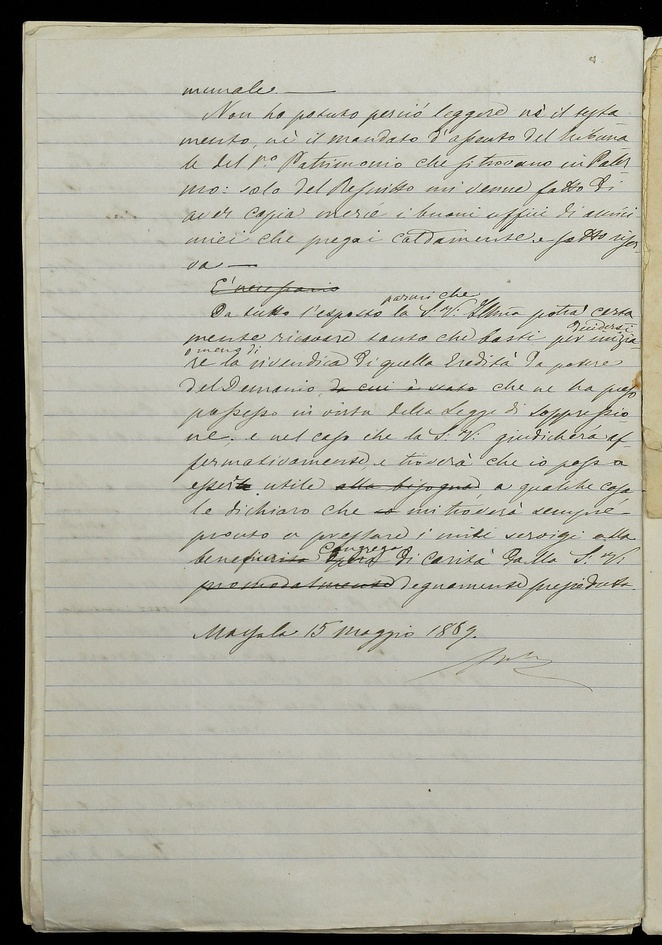 munale —
Non ho potuto perciò leggere nè il testa
mento, nè il mandato d'assento del Tribuna
le del R.o Patrimonio che si trovano in Paler
mo: solo del Respritto mi venne fatto di
aver copia mercè i buoni uffici di amici
miei che pregai caldamente e sotto riser
va —
E' necessario
parmi che
Da tutto l'esposto la S. V. Ill.ma potrà certa
mente ricavare tanto che basti per
decidersi
inizia
o meno di
re la rivendica di quella Eredità da potere
del Demanio da cui è stato che ne ha preso
possesso in virtù della Legge di Soppressio
ne. e nel caso che la S. V. giudicherà af
fermativamente e troverà che io possa
essere utile alla bisogna, a qualche cosa
le dichiaro che mi troverà sempre
pronto a prestare i miei servigi alla
Congrega
benefica Opera di carità dalla S. V.
degnamente presieduta.
Marsala 15 maggio 1869.